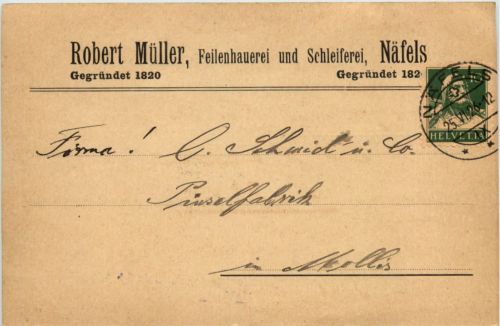 Robert Müller, Feilenhauerei und Schleiferei, Näfels
Gegründet 1820 Gegründet 182
NÄFELS
25.VI.
HELVETIA
Firma! C. Schmid u. Co.
Pinselfabrik
in Mollis